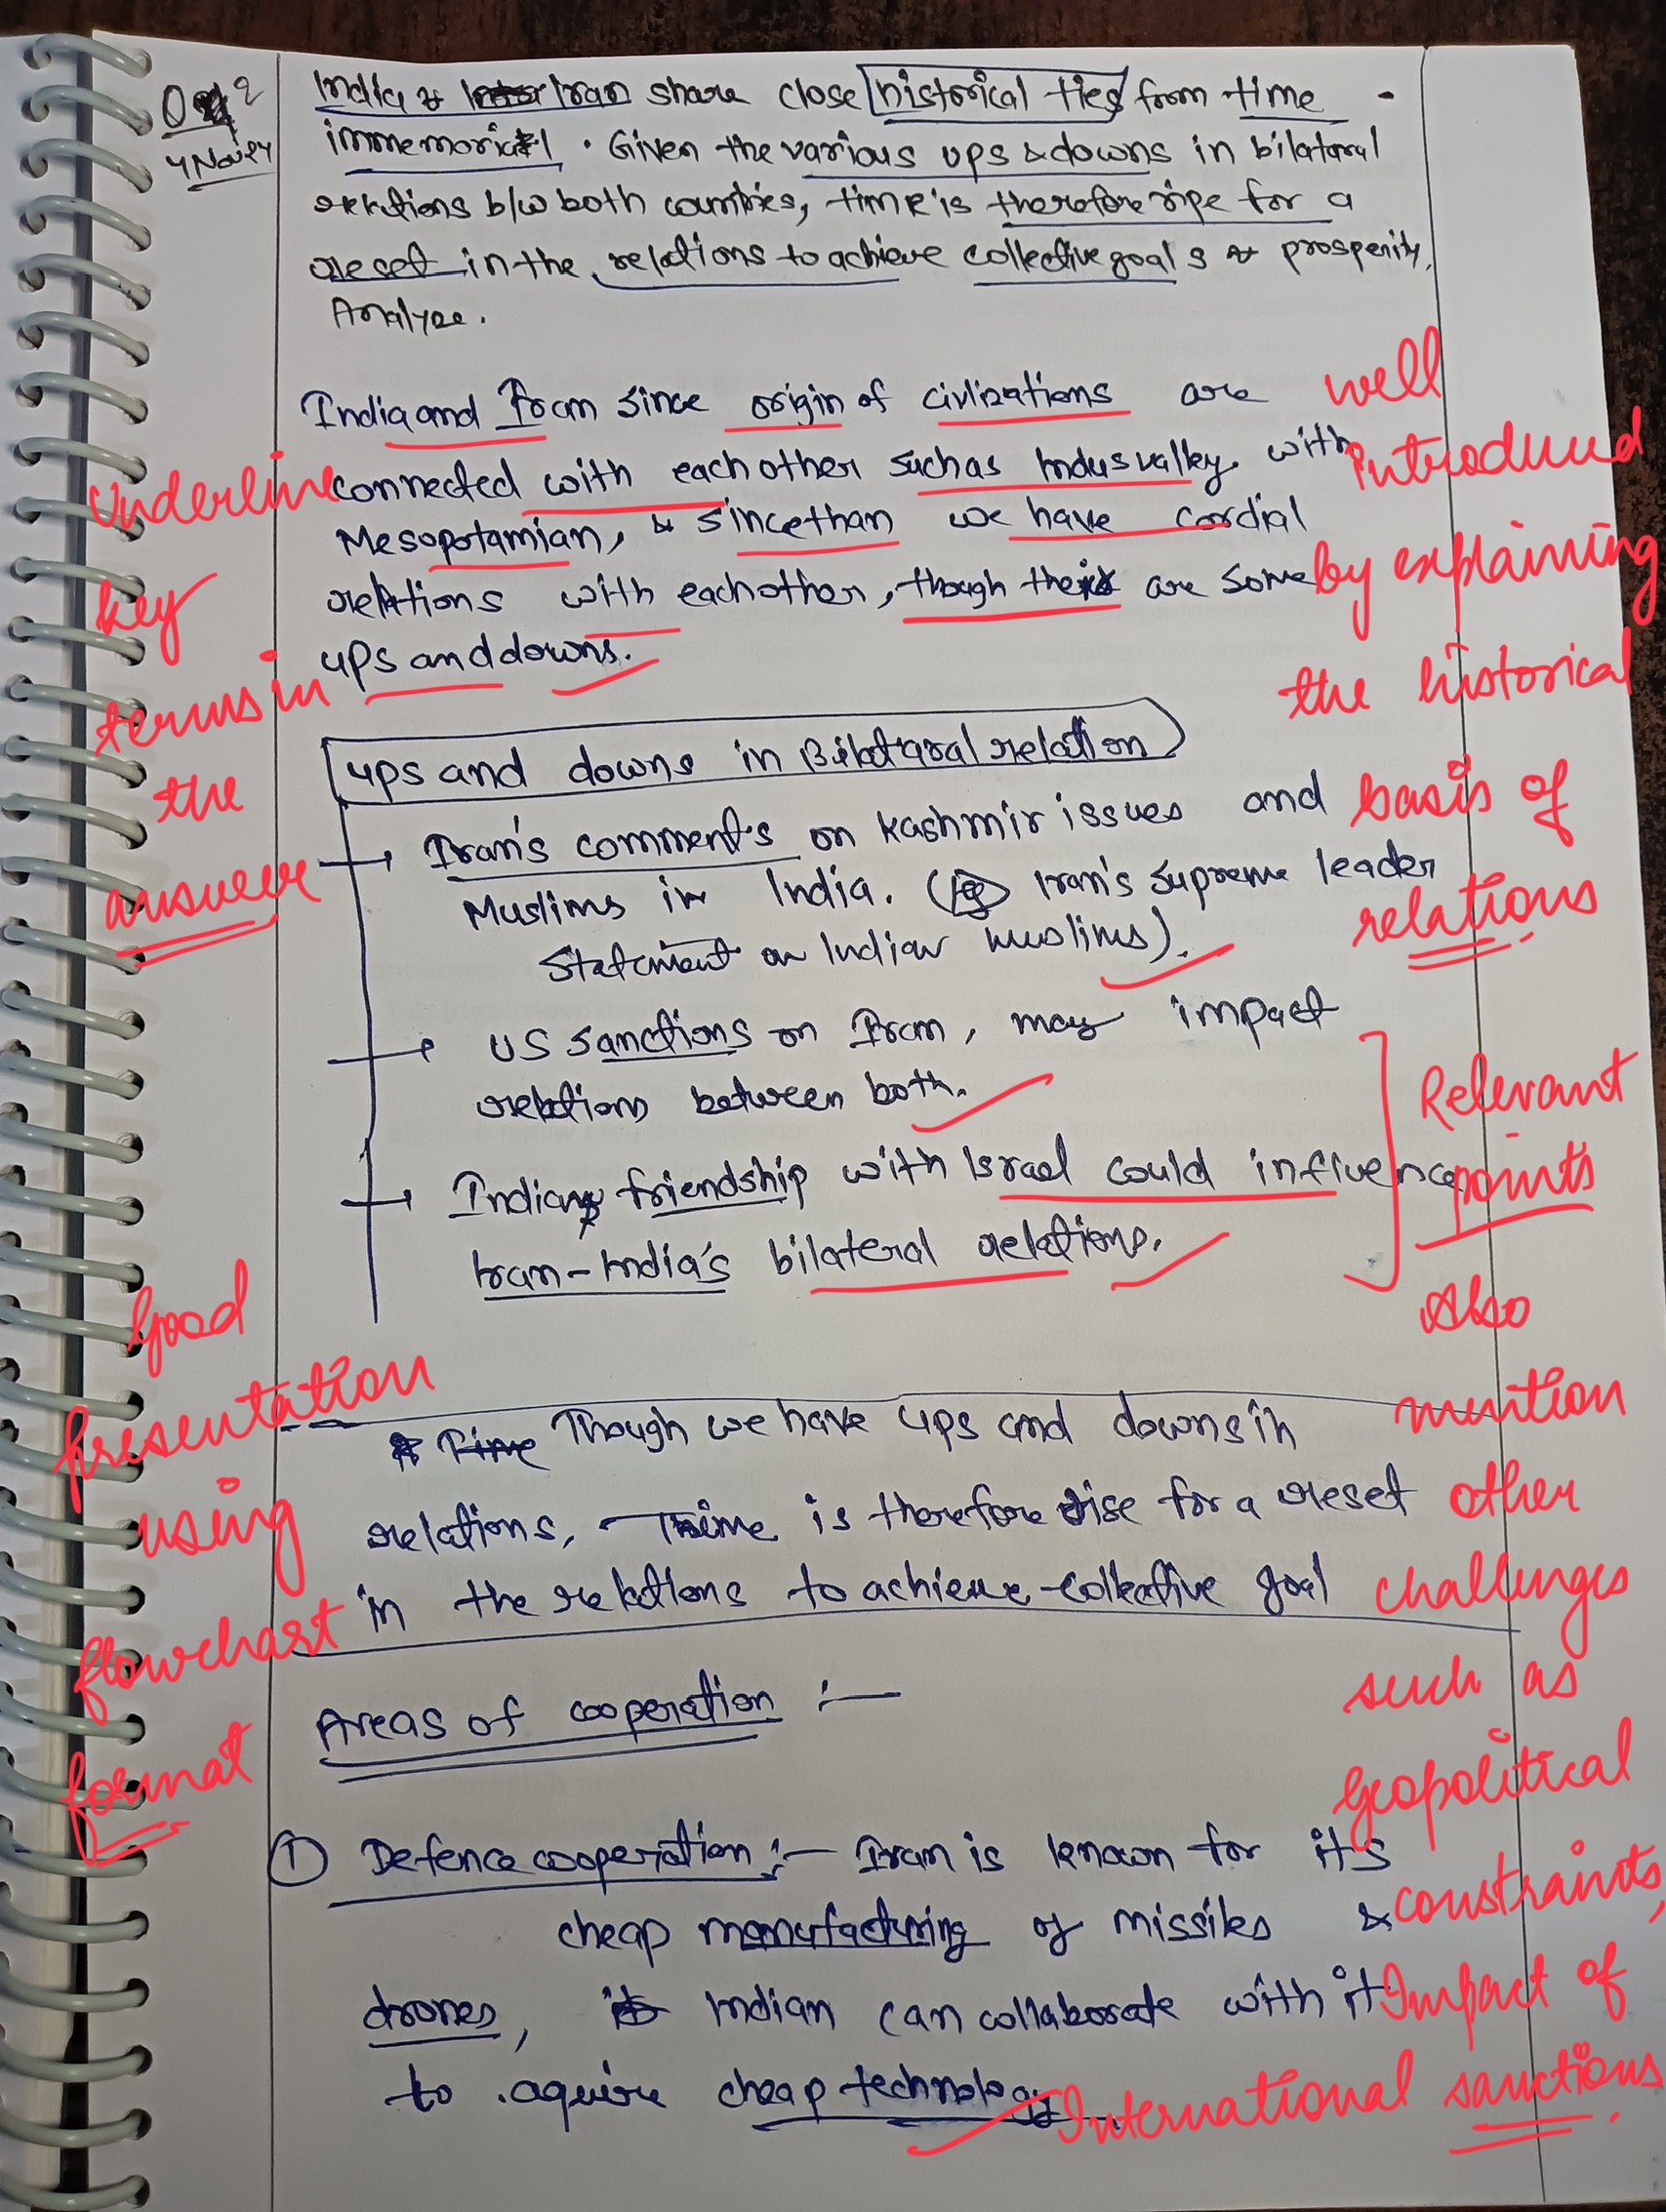 Q 2
4 Nov 24
India & Iran share close historical ties from time
immemorial. Given the various ups & downs in bilateral
relations b/w both countries, time is therefore ripe for a
reset in the relations to achieve collective goals & prosperity.
Analyze.
India and Iran since origin of civlizations are
connected with each other such as Indus valley with
Mesopotamian, & since than we have cordial
relations with each other, though their are some
ups and downs.
ups and downs in Bilataral relation
Iran's comments on Kashmir issues and
Muslims in India. (eg Iran's supreme leader
statement on Indian muslims).
US sanctions on Iran, may impact
relations between both.
Indian friendship with Israel could influence
Iran-India's bilateral relations.
Time Though we have ups and downs in
relations, Time is therefore rise for a reset
in the relations to achieve collective goal
Areas of cooperation :—
① Defence cooperation :— Iran is known for its
cheap manufacturing of missiles &
drones, Indian can collaborate with it
to aquire cheap technology
Underline
key
terms in
the
answer
Good
presentation
using
flowchart
format
well
introduced
by explaining
the historical
basis of
relations
Relevant
points
Also
mention
other
challenges
such as
Geopolitical
constraints,
Impact of
International sanctions.